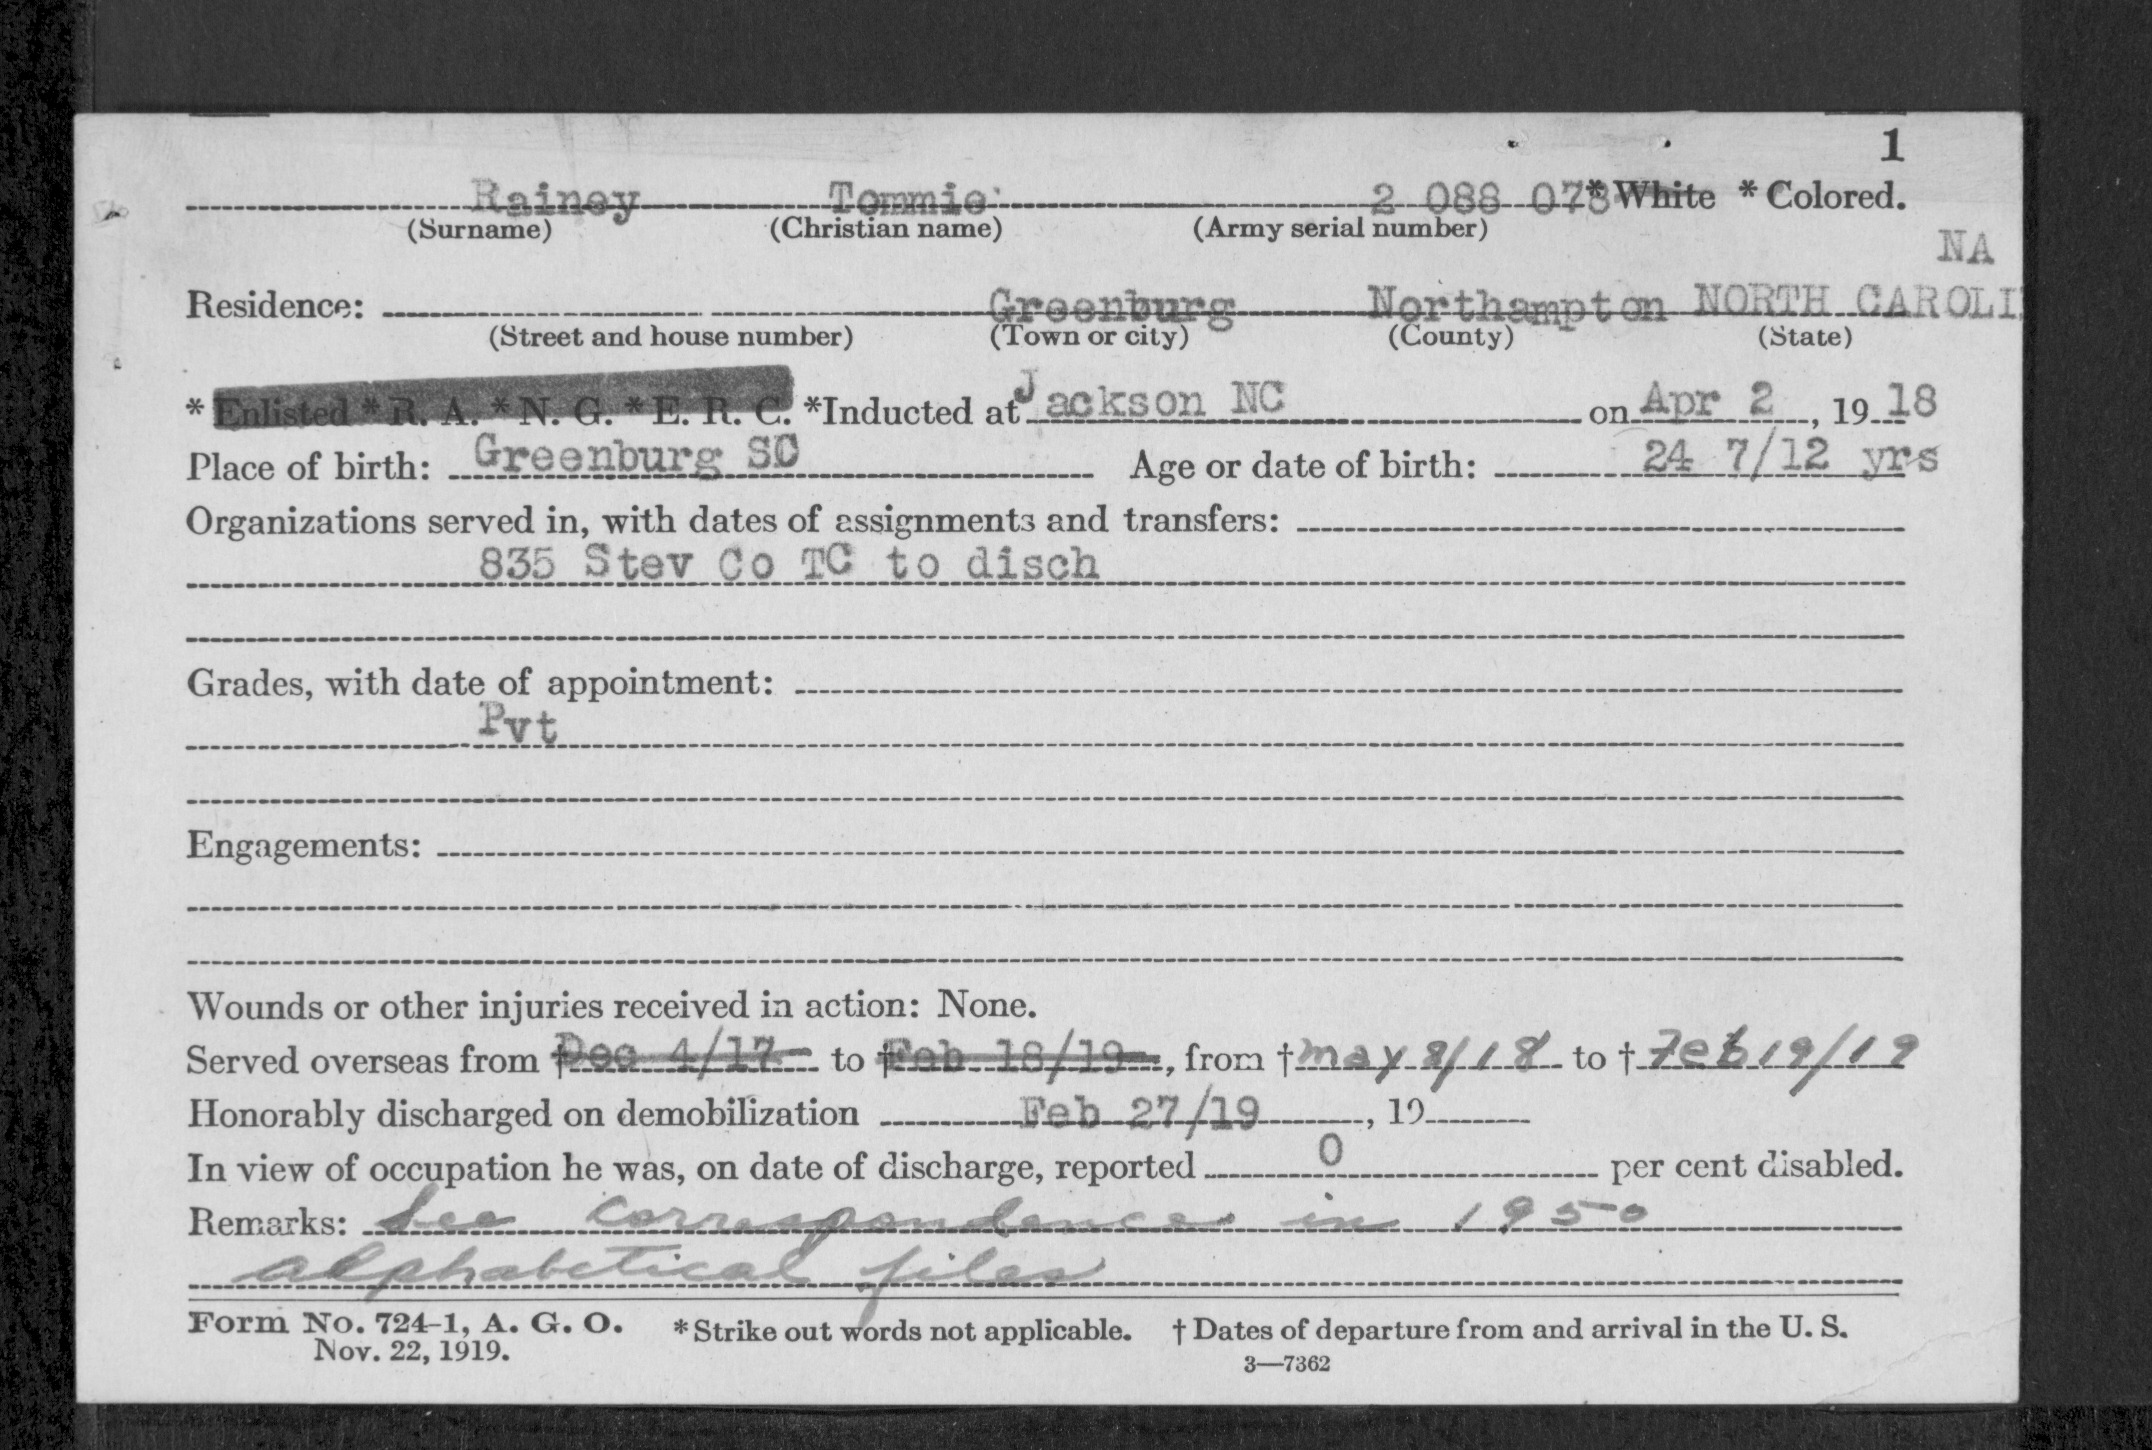 1
Rainey Tommie 2 088 078 * White * Colored.
(Surname) (Christian name) (Army serial number)
NA
Residence: Greenburg Northampton NORTH CAROLI
(Street and house number) (Town or city) (County) (State)
* Enlisted * R. A. * N. G. * E. R. C. *Inducted at Jackson NC on Apr 2, 1918
Place of birth: Greenburg SC Age or date of birth: 24 7/12 yrs
Organizations served in, with dates of assignments and transfers:
835 Stev Co TC to disch
Grades, with date of appointment:
Pvt
Engagements:
Wounds or other injuries received in action: None.
Served overseas from † Dec 4/17 to † Feb 18/19, from † May 8/18 to † Feb 19/19
Honorably discharged on demobilization Feb 27/19, 19
In view of occupation he was, on date of discharge, reported 0 per cent disabled.
Remarks: See correspondence in 1950
alphabetical files
Form No. 724-1, A. G. O. * Strike out words not applicable. † Dates of departure from and arrival in the U. S.
Nov. 22, 1919. 3—7362